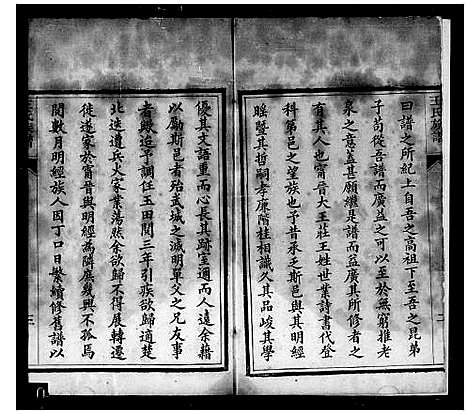 王氏族譜
曰譜之所紀上自吾之高祖下至吾之昆弟
千苟從吾譜而廣益之可以至於無窮推老
泉之意蓋甚願繼是譜而益廣其所修者之
有其人也甯晉大王莊王姓世業詩書代登
科第邑之望族也予昔承乏斯邑與其明經
暨其哲嗣孝廉階桂相識久其品峻其學
優其文語重而心長其跡室邇而人遠余藉
以勵斯邑者殆武城之滅明單父之兄友事
者歟迨予調任玉田閱三年引疾欲歸適楚
北迭遭兵火家業蕩然余欲歸不得展轉遷
徙遂家於甯晉與明經為隣庶幾興不孤焉
閱數月明經族人因丁口日繁續修舊譜以
三